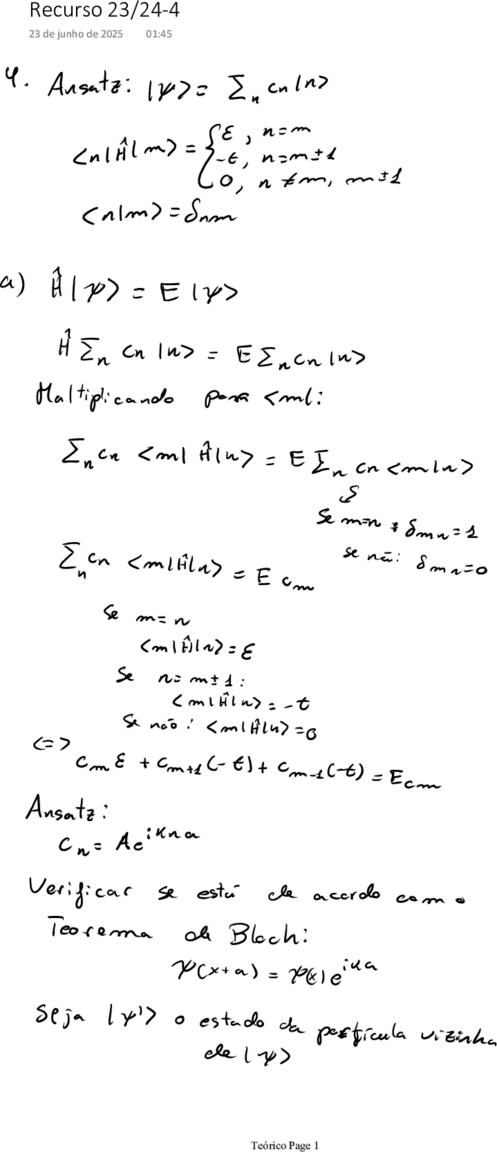 Recurso 23/24-4
23 de junho de 2025 01:45
4. Ansatz: |ψ> = Σn cn |n>
<n|Ĥ|m> = { ε, n=m
-t, n=m±1
0, n≠m, m±1
<n|m> = δnm
a) Ĥ|ψ> = E|ψ>
Ĥ Σn cn |n> = E Σn cn |n>
Multiplicando para <m|:
Σn cn <m|Ĥ|n> = E Σn cn <m|n>
Se m=n : δmn = 1
se não: δmn = 0
Σn cn <m|Ĥ|n> = E cm
Se m=n
<m|Ĥ|n> = ε
Se n=m±1:
<m|Ĥ|n> = -t
Se não: <m|Ĥ|n> = 0
<=>
cm ε + cm+1 (-t) + cm-1 (-t) = E cm
Ansatz:
cn = A e^ikna
Verificar se está de acordo com o
Teorema de Bloch:
ψ(x+a) = ψ(x) e^ika
Seja |ψ'> o estado da partícula vizinha
de |ψ>
Teórico Page 1